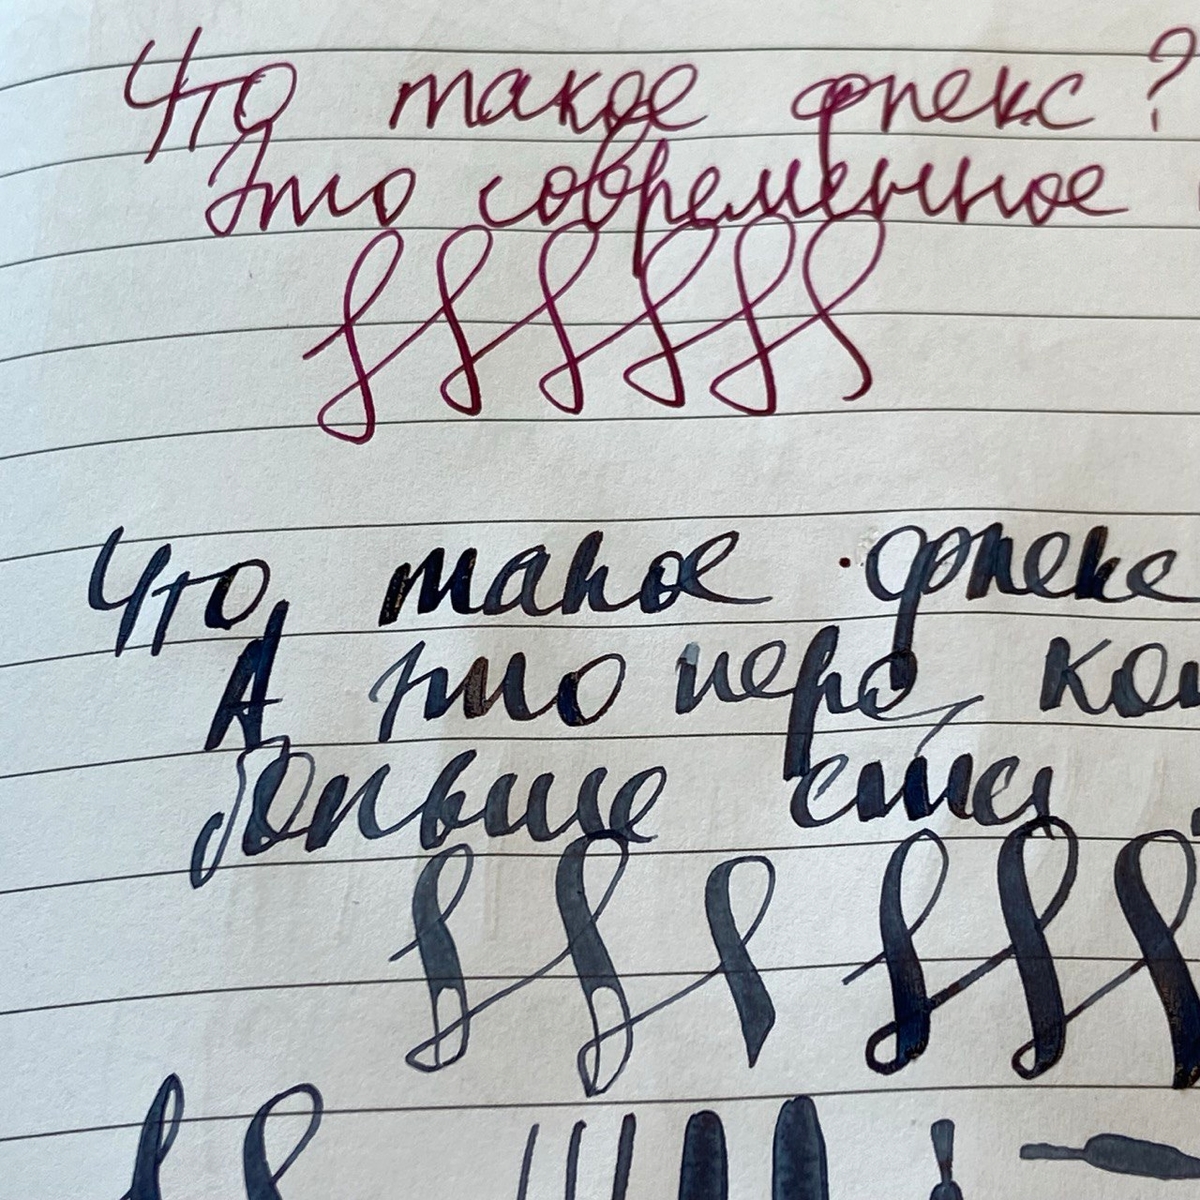 Что такое флекс?
Это современное
Что такое флекс
А это перо, ко
больше